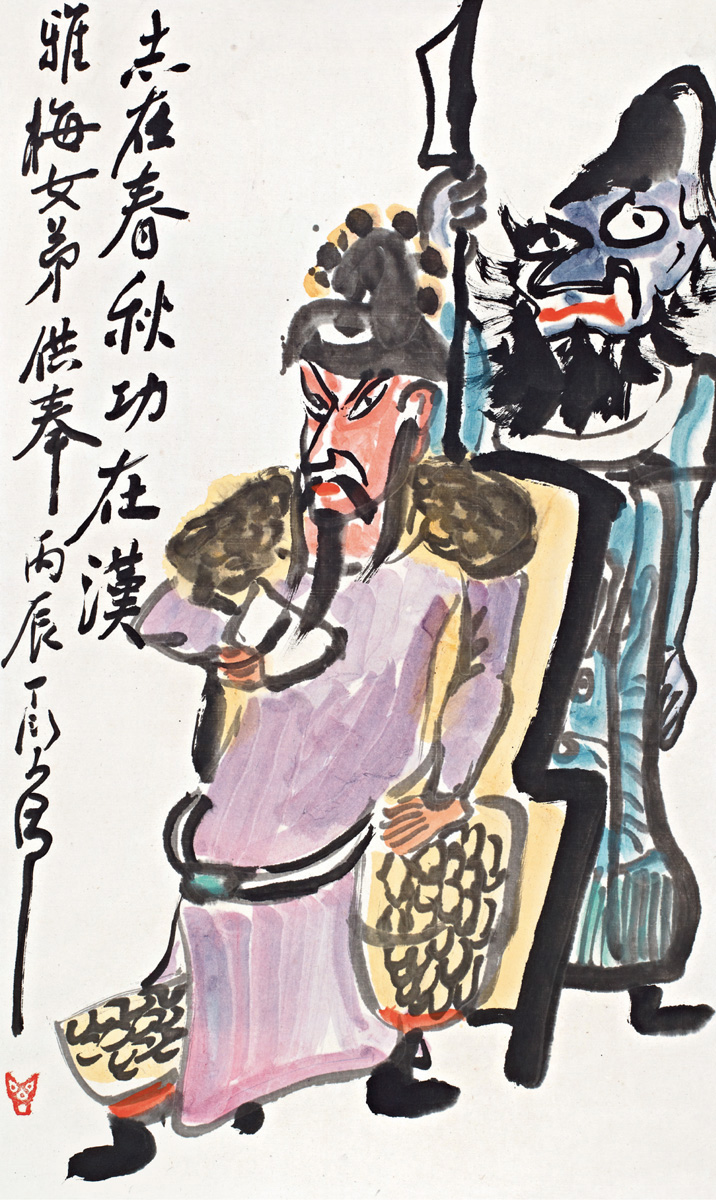 志在春秋功在漢
雅梅女弟供奉丙辰丁衍庸